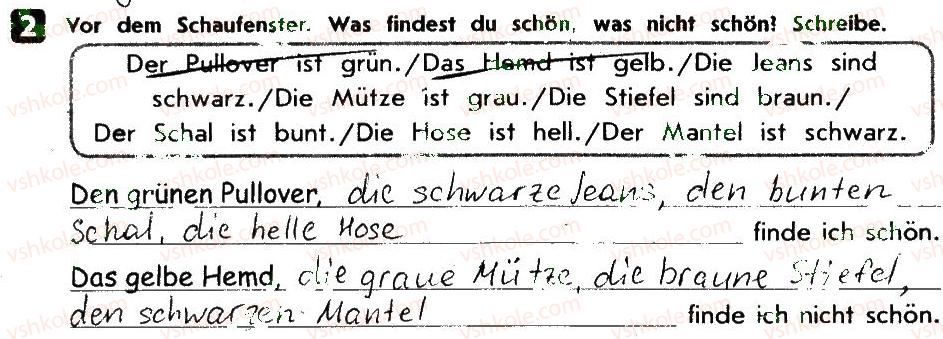 2 Vor dem Schaufenster. Was findest du schön, was nicht schön? Schreibe.
Der Pullover ist grün./Das Hemd ist gelb./Die Jeans sind
schwarz./Die Mütze ist grau./Die Stiefel sind braun./
Der Schal ist bunt./Die Hose ist hell./Der Mantel ist schwarz.
Den grünen Pullover, die schwarze Jeans, den bunten
Schal, die helle Hose finde ich schön.
Das gelbe Hemd, die graue Mütze, die braune Stiefel,
den schwarzen Mantel finde ich nicht schön.